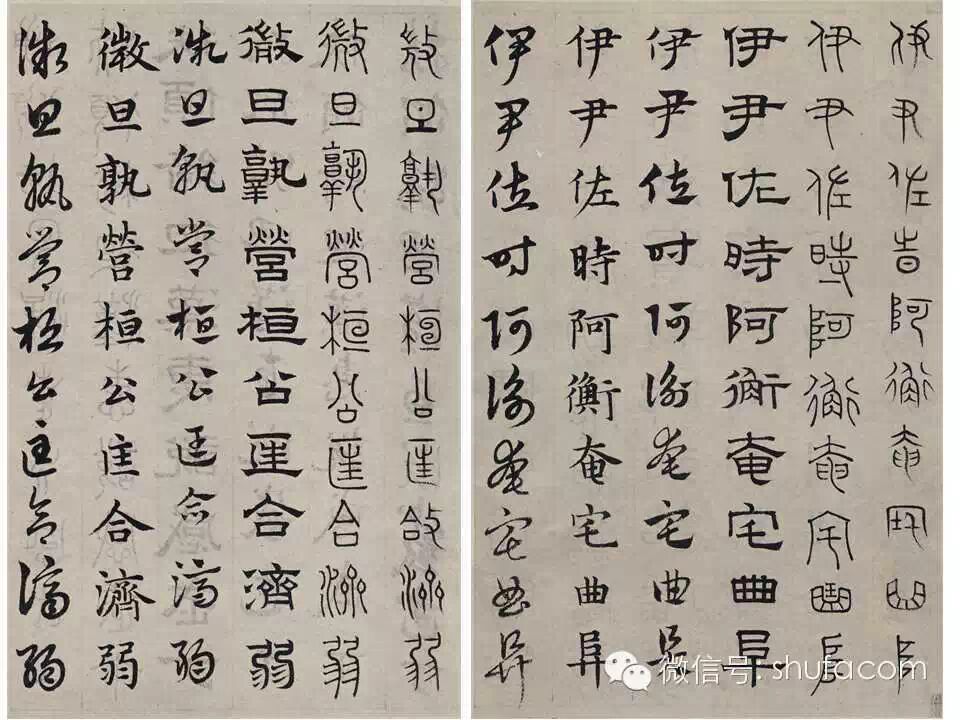 伊尹佐時阿衡奄宅曲阜
伊尹佐時阿衡奄宅曲阜
伊尹佐時阿衡奄宅曲阜
伊尹佐時阿衡奄宅曲阜
伊尹佐時阿衡奄宅曲阜
伊尹佐時阿衡奄宅曲阜
微旦孰營桓公匡合濟弱
微旦孰營桓公匡合濟弱
微旦孰營桓公匡合濟弱
微旦孰營桓公匡合濟弱
微旦孰營桓公匡合濟弱
微旦孰營桓公匡合濟弱
微信号: shufacom